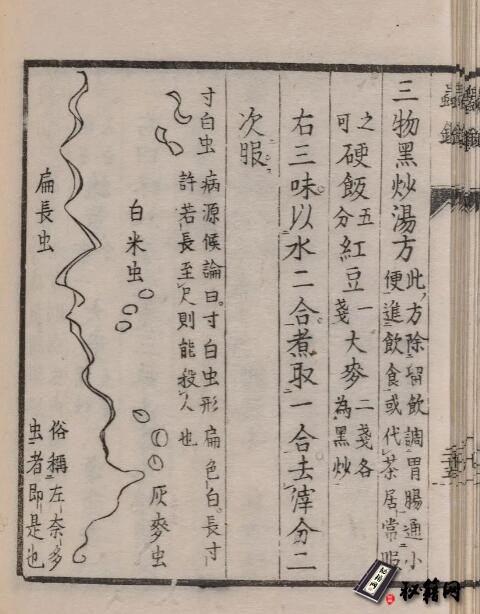 三物黑炒湯方 此方除留飲調胃腸通小
便進飲食或代茶居常服
之可 硬飯五分 紅豆一戔 大麥二戔各為黑炒
右三味以水二合煮取一合去滓分二
次服
寸白虫 病源候論曰寸白虫形扁色白長寸
許若長至尺則能殺人也
白米虫
灰麥虫
扁長虫
俗稱左奈多
虫者即是也
秘籍网